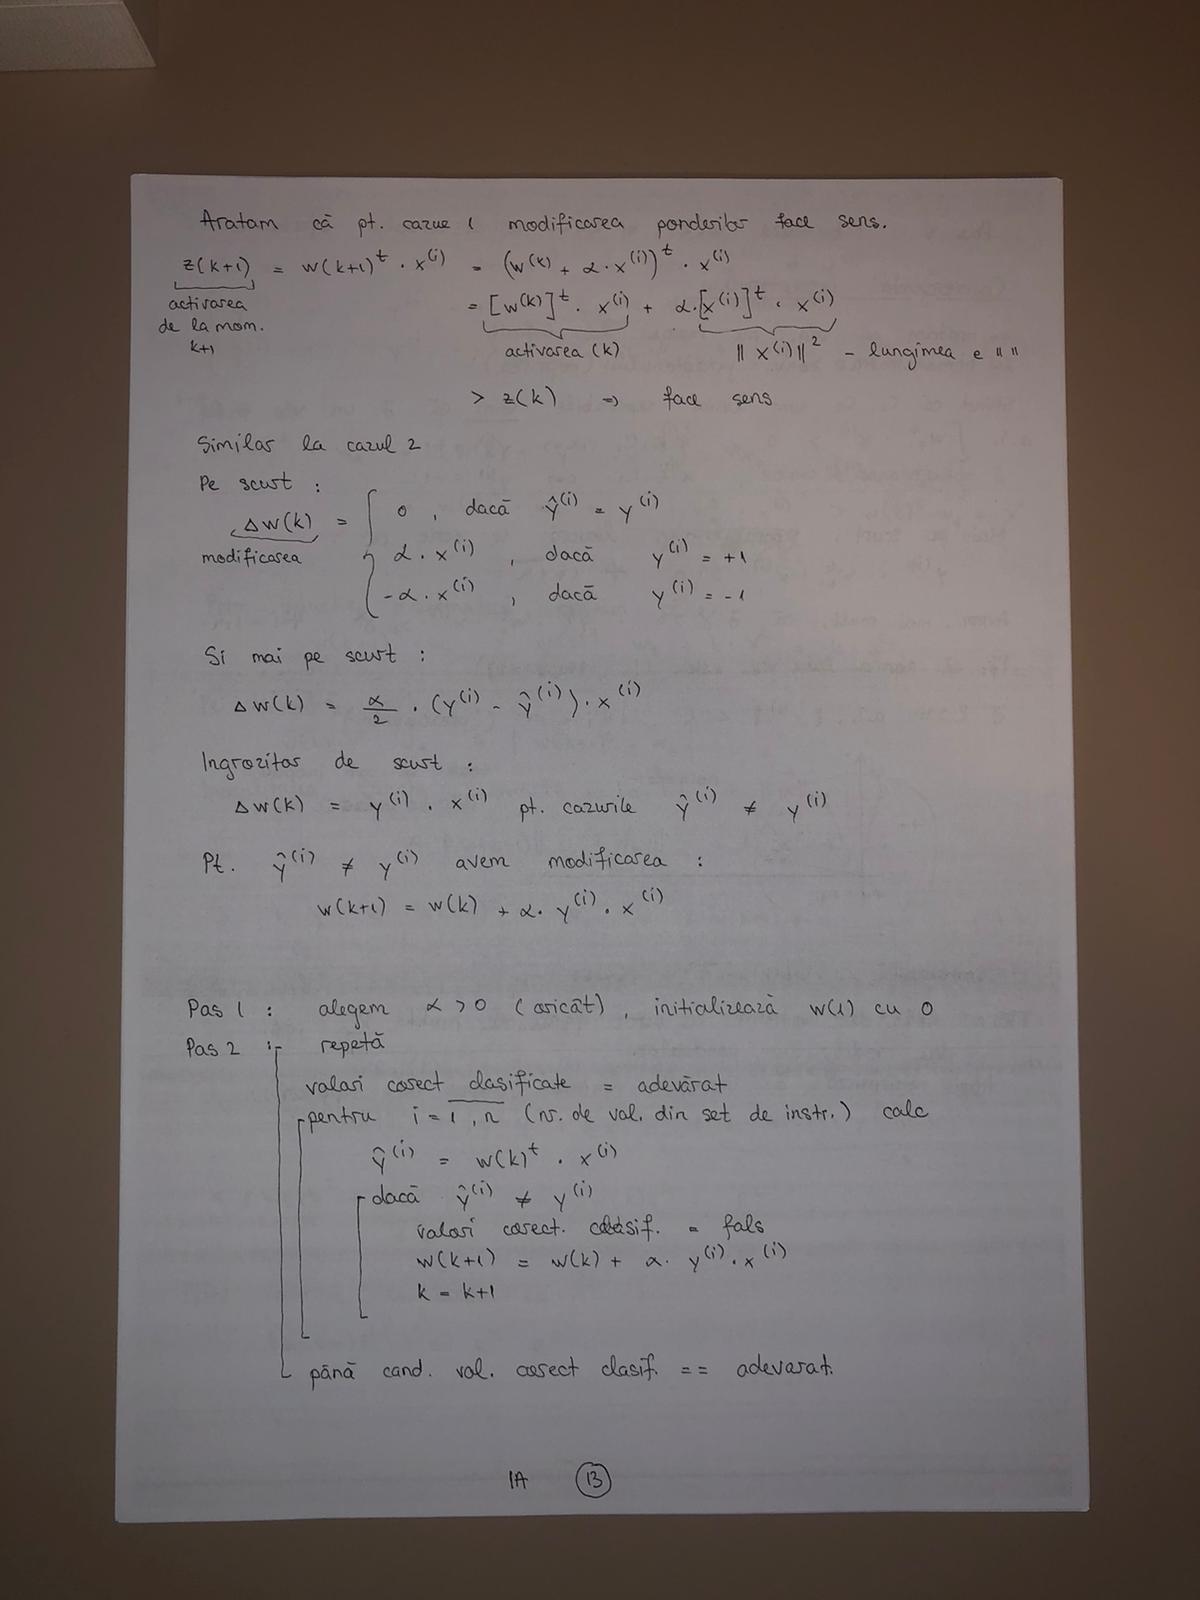 Aratam că pt. cazue 1 modificarea ponderilor face sens.
z(k+1) = w(k+1)^t · x^(i) = (w^(k) + α · x^(i))^t · x^(i)
activarea de la mom. k+1
= [w^(k)]^t · x^(i) + α · [x^(i)]^t · x^(i)
activarea (k) ‖x^(i)‖^2 - lungimea e " "
> z(k) => face sens
Similar la cazul 2
Pe scurt :
Δw(k) = { 0 , dacă ŷ^(i) = y^(i)
modificarea α · x^(i) , dacă y^(i) = +1
-α · x^(i) , dacă y^(i) = -1
Si mai pe scurt :
Δw(k) = α/2 · (y^(i) - ŷ^(i)) · x^(i)
Ingrozitor de scurt :
Δw(k) = y^(i) · x^(i) pt. cazurile ŷ^(i) ≠ y^(i)
Pt. ŷ^(i) ≠ y^(i) avem modificarea :
w(k+1) = w(k) + α · y^(i) · x^(i)
Pas 1 : alegem α > 0 (oricât), initializează w(1) cu 0
Pas 2 : repetă
valori corect clasificate = adevărat
pentru i = 1, n (nr. de val. din set de instr.) calc
ŷ^(i) = w(k)^t · x^(i)
dacă ŷ^(i) ≠ y^(i)
valori corect. clasif. = fals
w(k+1) = w(k) + α · y^(i) · x^(i)
k = k+1
până cand. val. corect clasif. == adevarat.
IA 13